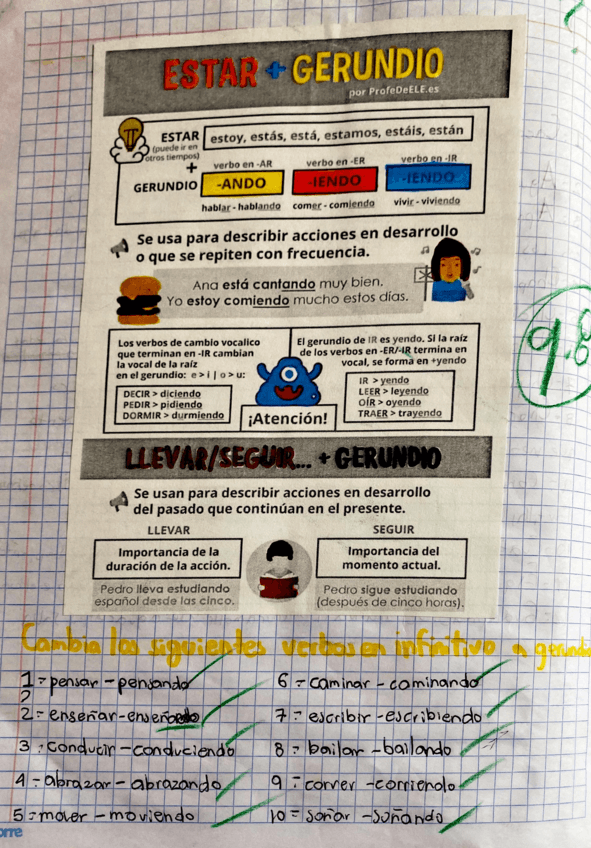 ESTAR + GERUNDIO
por ProfeDeELE.es
ESTAR
(puede ir en
otros tiempos)
estoy, estás, está, estamos, estáis, están
+
GERUNDIO
verbo en -AR
verbo en -ER
verbo en -IR
-ANDO
-IENDO
-IENDO
hablar - hablando
comer - comiendo
vivir - viviendo
Se usa para describir acciones en desarrollo
o que se repiten con frecuencia.
Ana está cantando muy bien.
Yo estoy comiendo mucho estos días.
Los verbos de cambio vocalico
que terminan en -IR cambian
la vocal de la raíz
en el gerundio: e > i | o > u:
DECIR > diciendo
PEDIR > pidiendo
DORMIR > durmiendo
¡Atención!
El gerundio de IR es yendo. Si la raíz
de los verbos en -ER/-IR termina en
vocal, se forma en +yendo
IR > yendo
LEER > leyendo
OÍR > oyendo
TRAER > trayendo
LLEVAR/SEGUIR... + GERUNDIO
Se usan para describir acciones en desarrollo
del pasado que continúan en el presente.
LLEVAR
Importancia de la
duración de la acción.
Pedro lleva estudiando
español desde las cinco.
SEGUIR
Importancia del
momento actual.
Pedro sigue estudiando
(después de cinco horas).
9.8
Cambia los siguientes verbos en infinitivo a gerundio
1 = pensar - pensando
2 = enseñar - enseñando
3 = conducir - conduciendo
4 = abrazar - abrazando
5 = mover - moviendo
6 = caminar - caminando
7 = escribir - escribiendo
8 = bailar - bailando
9 = correr - corriendo
10 = soñar - soñando
orre